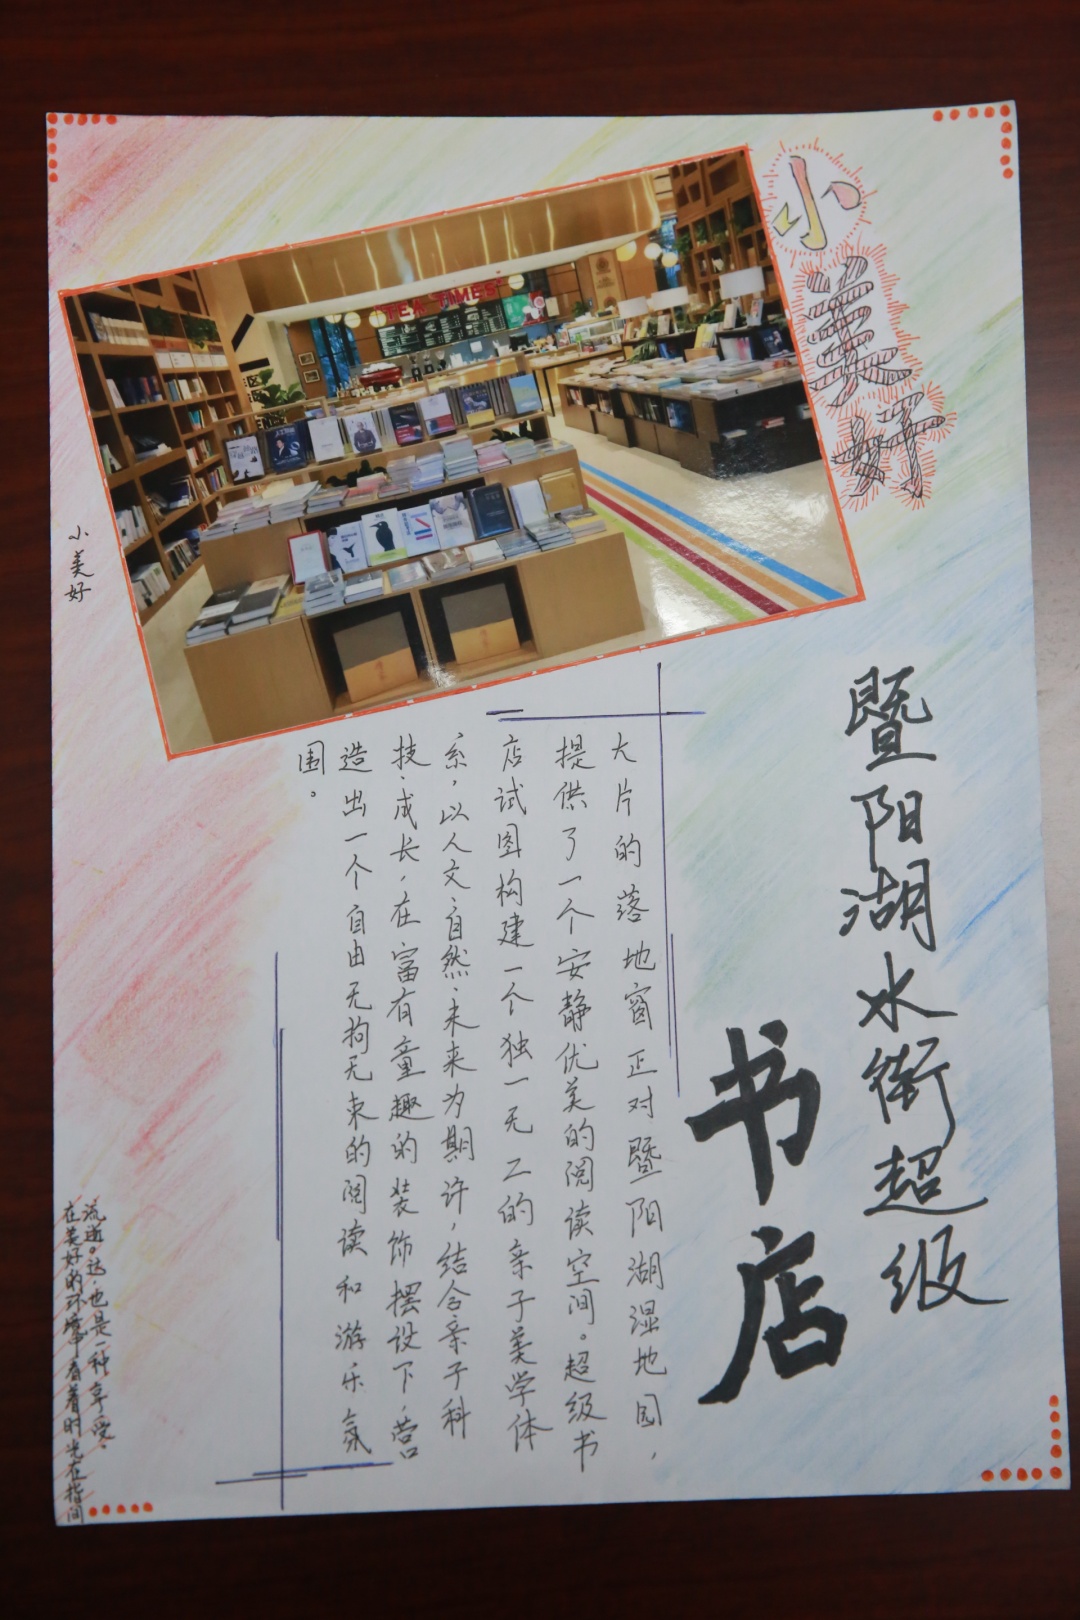 小美好
暨阳湖水街超级
书店
大片的落地窗正对暨阳湖湿地园，
提供了一个安静优美的阅读空间。超级书
店试图构建一个独一无二的亲子美学体
系，以人文、自然、未来为期许，结合亲子科
技、成长，在富有童趣的装饰摆设下，营
造出一个自由无拘无束的阅读和游乐氛
围。
小美好
在美好的环境中看着时光在指间
流逝。达，也是一种享受。
TEA TIMES